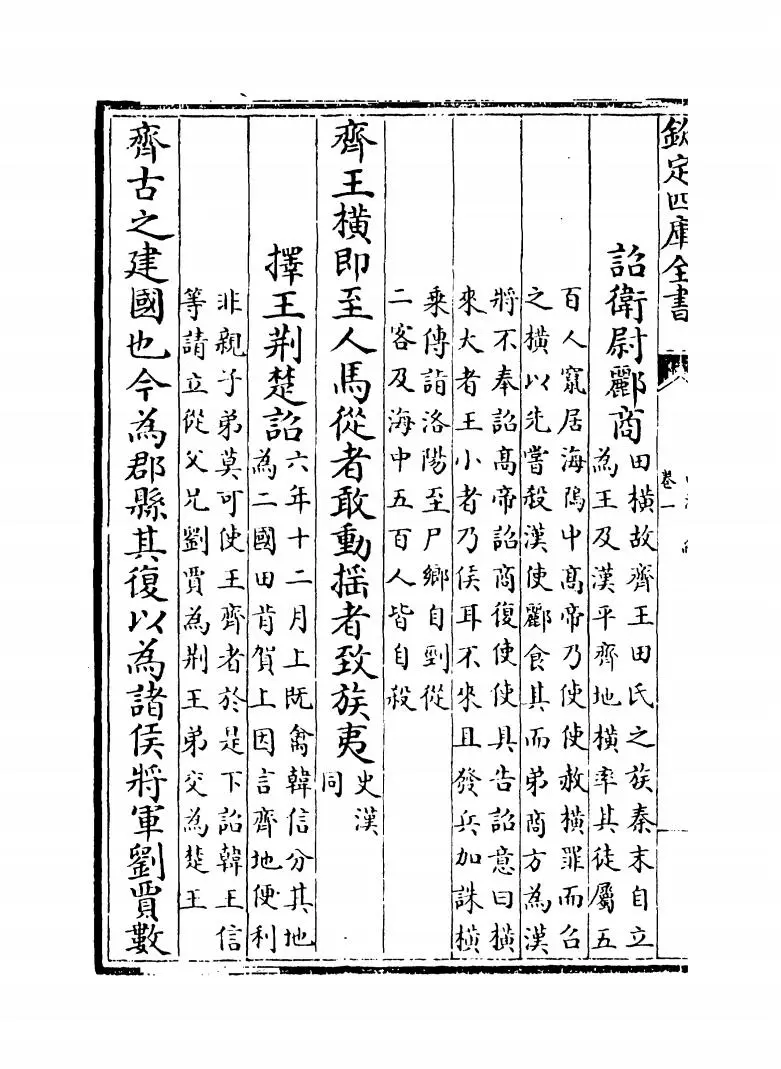 欽定四庫全書
卷一
詔衛尉酈商
田橫故齊王田氏之族秦末自立
為王及漢平齊地橫率其徒屬五
百人竄居海隝中髙帝乃使使赦橫罪而召
之橫以先嘗殺漢使酈食其而弟商方為漢
將不奉詔髙帝詔商復使使具告詔意曰橫
來大者王小者乃侯耳不來且發兵加誅橫
乘傳詣洛陽至尸鄉自剄從
二客及海中五百人皆自殺
齊王橫即至人馬從者敢動揺者致族夷
史漢
同
擇王荆楚詔
六年十二月上既禽韓信分其地
為二國田肯賀上因言齊地便利
非親子弟莫可使王齊者於是下詔韓王信
等請立從父兄劉賈為荆王弟交為楚王
齊古之建國也今為郡縣其復以為諸侯將軍劉賈數